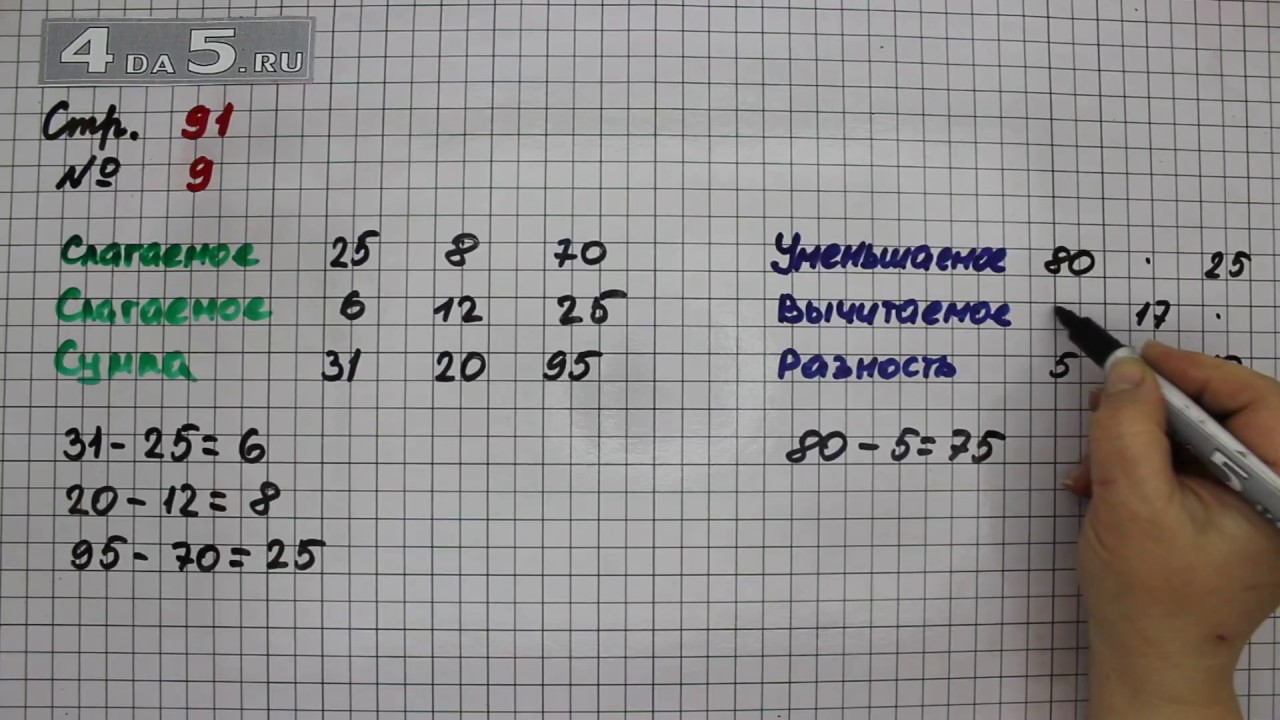 4DA5.RU
Стр. 91
№ 9
Слагаемое 25 8 70
Слагаемое 6 12 25
Сумма 31 20 95
31 - 25 = 6
20 - 12 = 8
95 - 70 = 25
Уменьшаемое 80 . 25
Вычитаемое 17 .
Разность 5
80 - 5 = 75